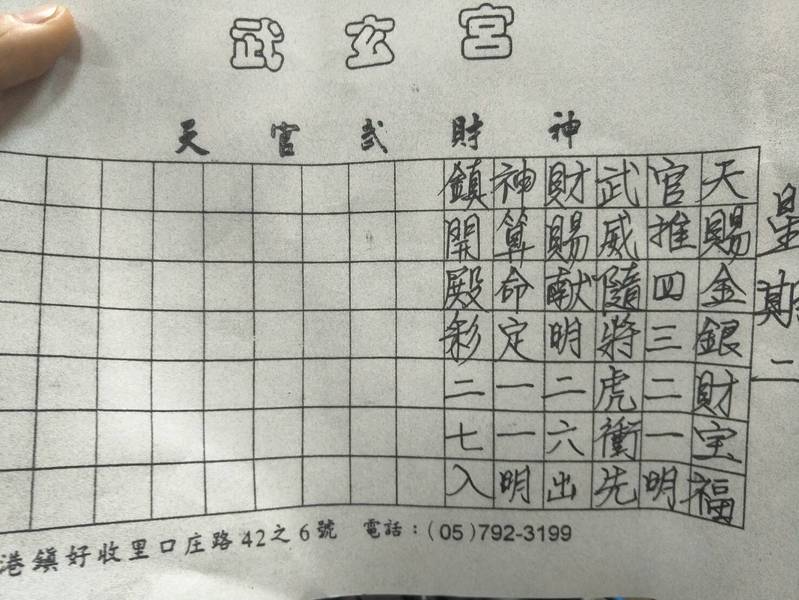 武玄宮
天官武財神
天賜金銀財宝福
官推四三二一明
武威隨將虎衝先
財賜献明二六出
神算命定一一明
鎮開殿彩二七入
星期二
港鎮好收里口庄路42之6號 電話：(05)792-3199